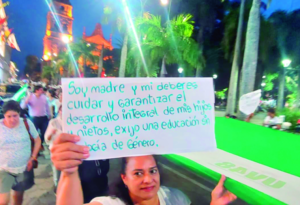 Soy madre y mi deber es
cuidar y garantizar el
desarrollo integral de mis hijos
y nietos, exijo una educación de
Género.